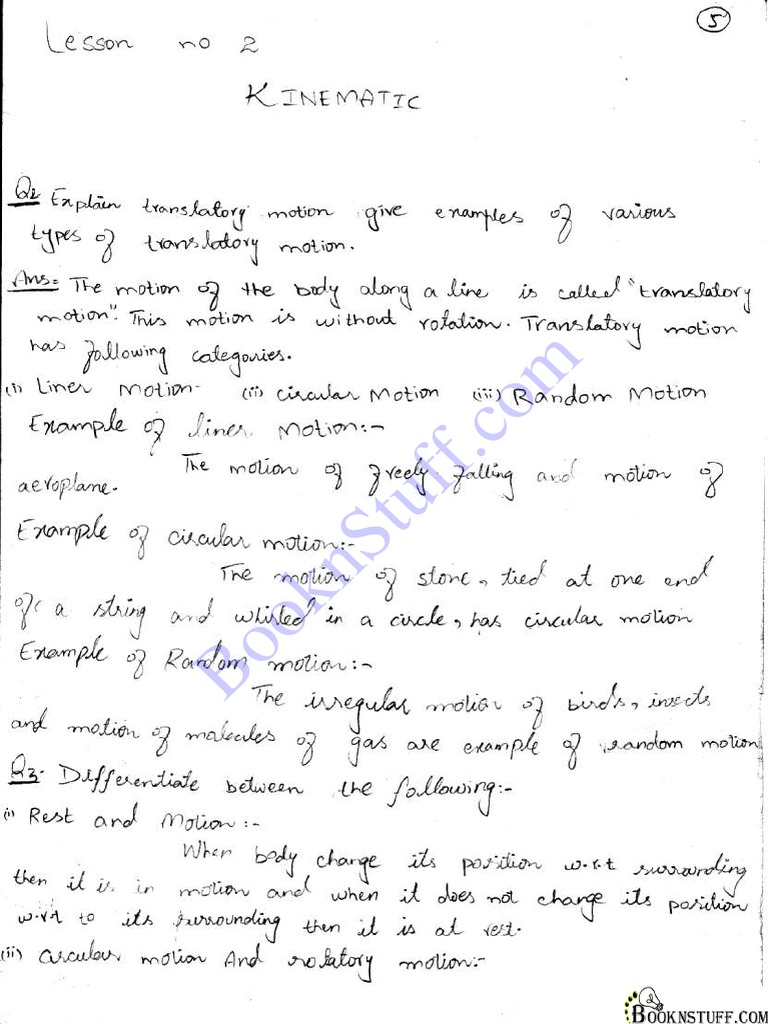 5
Lesson no 2
KINEMATIC
Q2 Explain translatory motion give examples of various
types of translatory motion.
Ans:- The motion of the body along a line is called "translatory
motion". This motion is without rotation. Translatory motion
has following categories.
(i) Liner Motion- (ii) Circular Motion (iii) Random Motion
Example of liner Motion:-
The motion of freely falling and motion of
aeroplane.
Example of circular motion:-
The motion of stone, tied at one end
of a string and whirled in a circle, has circular motion
Example of Random motion:-
The irregular motion of birds, insects
and motion of malecules of gas are example of random motion
Q3- Differentiate between the following:-
(i) Rest and Motion:-
When body change its position w.r.t surrounding
then it is in motion and when it does not change its position
w.r.t to its surrounding then it is at rest.
(ii) Circular motion And rotatory motion:-
BooknStuff.com
BOOKNSTUFF.COM